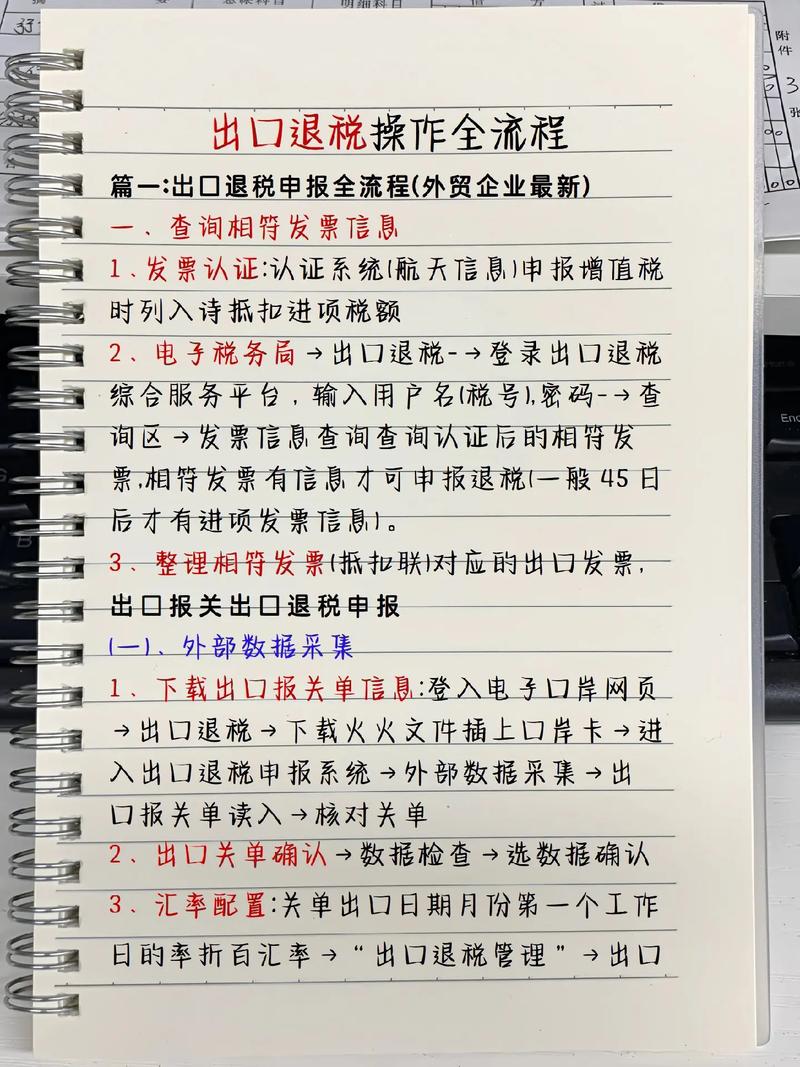 摘
要
总账科目
明细科目
附
件
张
出口退税操作全流程
篇一:出口退税申报全流程(外贸企业最新)
一、查询相符发票信息
1、发票认证:认证系统(航天信息)申报增值税
时列入诗抵扣进项税额
2、电子税务局→出口退税-→登录出口退税
综合服务平台，输入用户名(税号),密码-→查
询区→发票信息查询查询认证后的相符发
票,相符发票有信息才可申报退税(一般45日
后才有进项发票信息)。
3、整理相符发票(抵扣联)对应的出口发票,
出口报关出口退税申报
(一)、外部数据采集
1、下载出口报关单信息:登入电子口岸网页
→出口退税→下载火火文件插上口岸卡→进
入出口退税申报系统→外部数据采集→出
口报关单读入→核对关单
2、出口关单确认→数据检查→选数据确认
3、汇率配置:关单出口日期月份第一个工作
日的率折百汇率→“出口退税管理”→出口